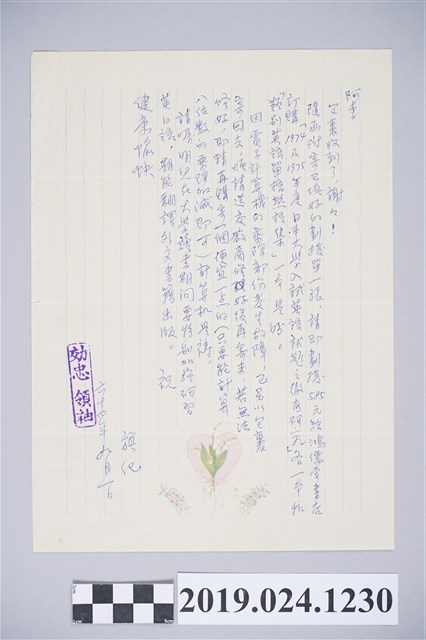 阿李
包裹收到了，謝々！
隨函附寄已填好的劃撥單一張，請即劃撥585元給鴻儒堂書店
訂購「1974及1975年度日本大學入試英語試題之徹底研究」各一本和
「類別英語單語熟語集」一本是盼。
因電子計算機的乘除部份發生故障，已另以包裹
寄回去，煩請送交廠商修好後再寄來，若無法
修好，即請再購寄一個便宜一点的（只要能計算
八位數的乘除加減即可）計算机是禱。
請囑明兒在大學讀書期間要特別加強研習
英日語，期能翻譯外文書籍出版。 祝
健康愉快
旗化
六十四年九月一日
効忠領袖
2019.024.1230